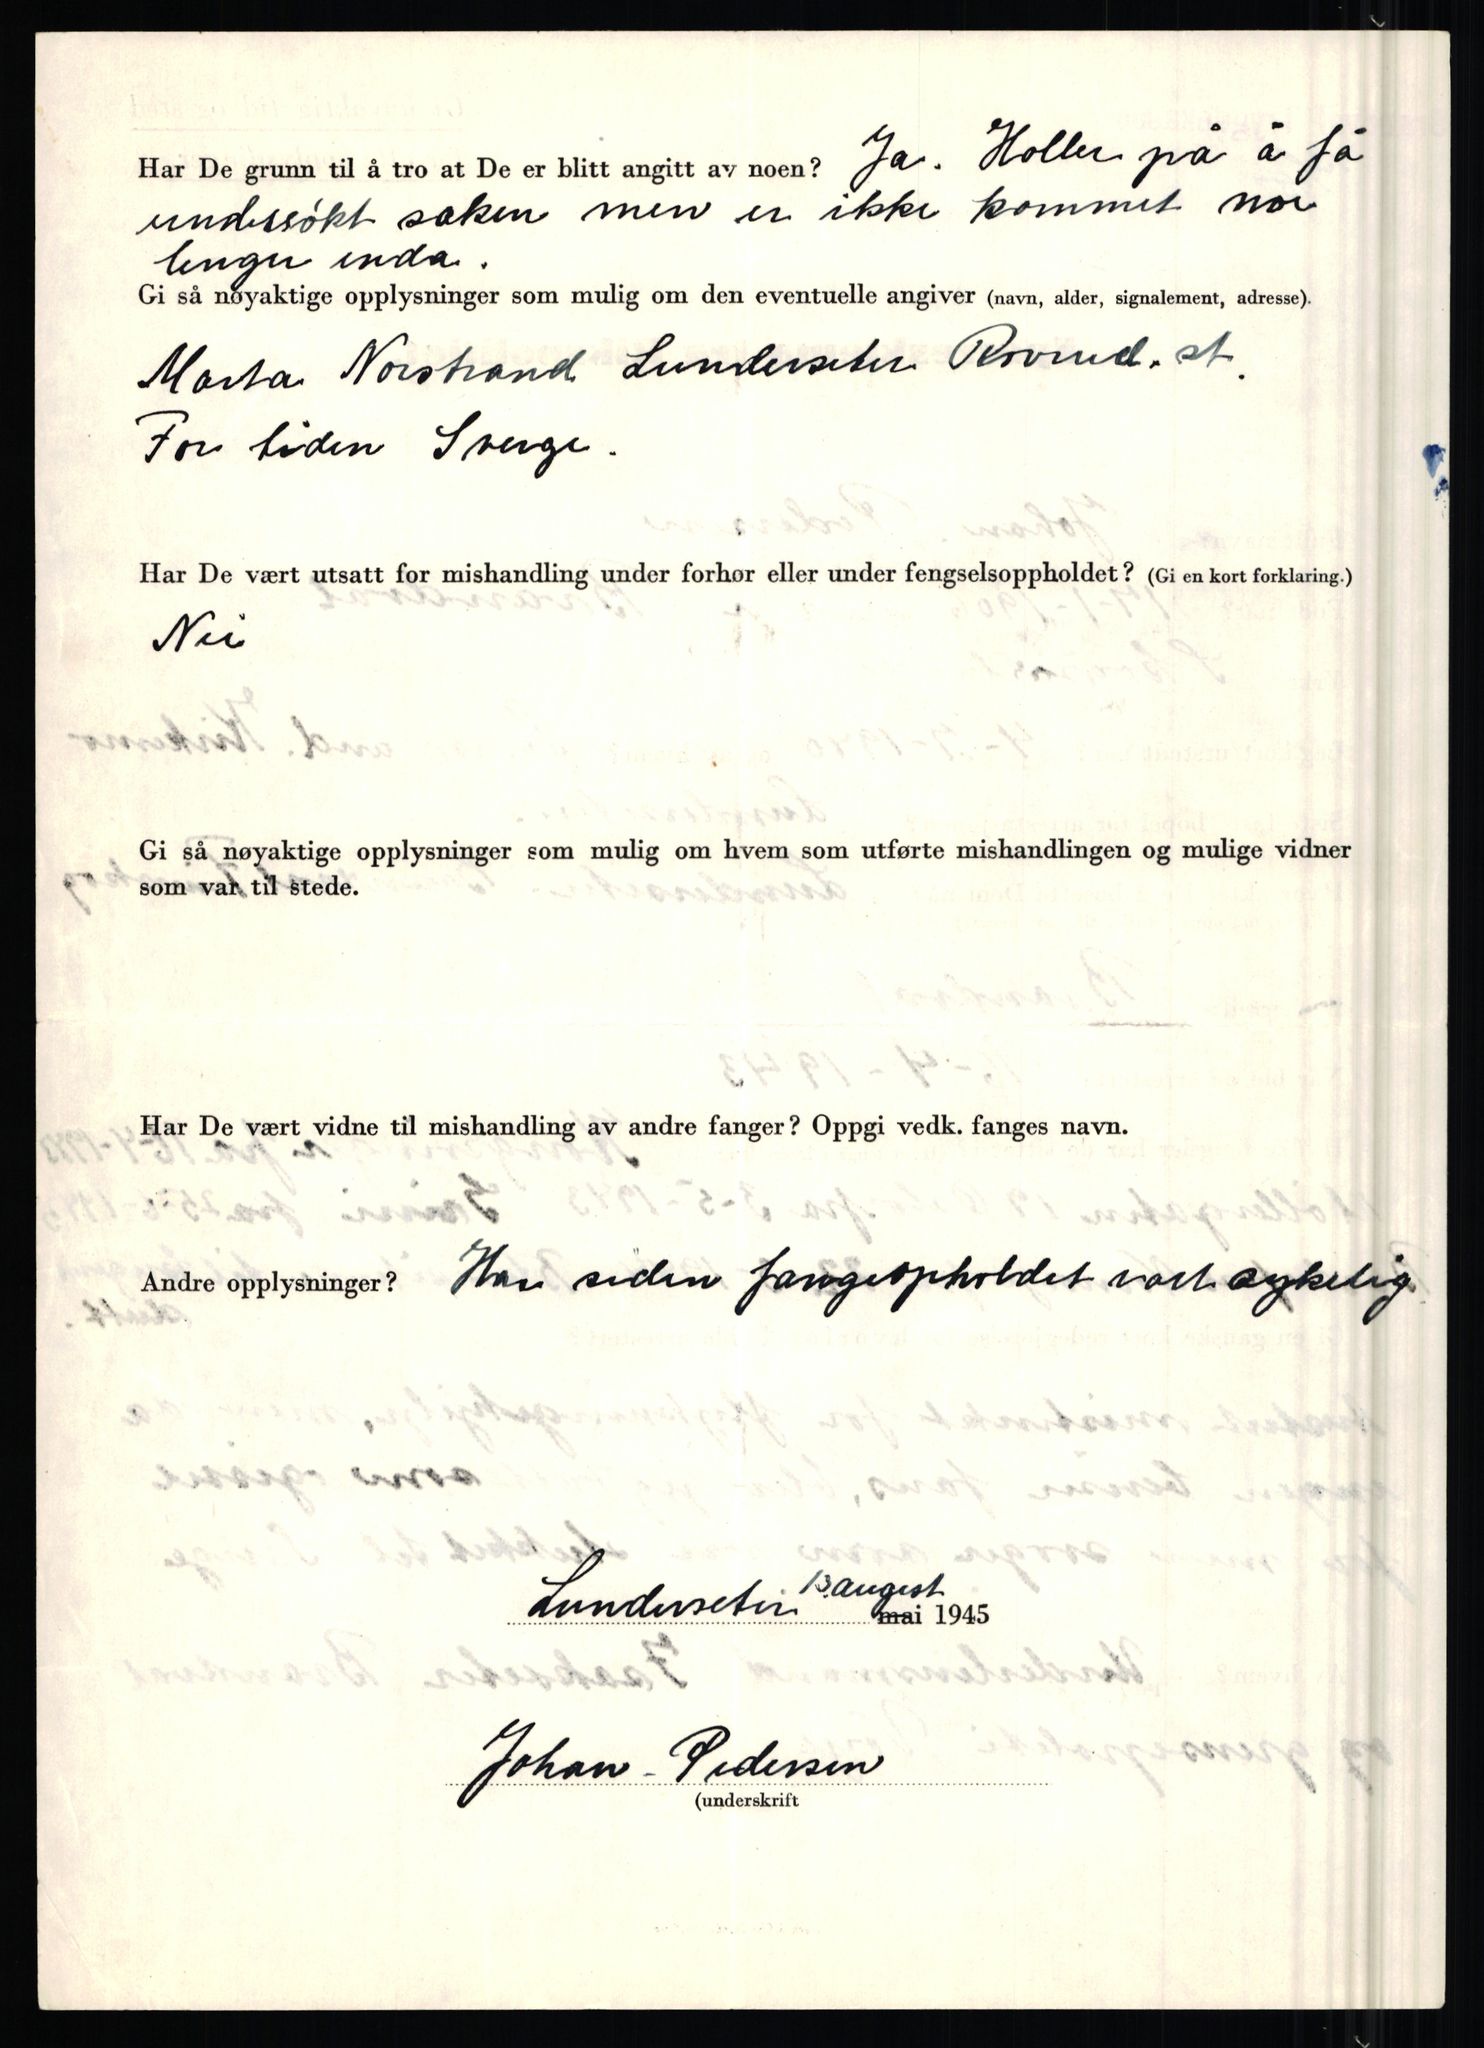 Har De grunn til å tro at De er blitt angitt av noen? Ja. Holler på å få
undersökt saken men er ikke kommet noe
lenger enda.
Gi så nøyaktige opplysninger som mulig om den eventuelle angiver (navn, alder, signalement, adresse).
Marta Norstrand Lunderseter Roverud. st.
For tiden Sverge.
Har De vært utsatt for mishandling under forhør eller under fengselsoppholdet? (Gi en kort forklaring.)
Nei
Gi så nøyaktige opplysninger som mulig om hvem som utførte mishandlingen og mulige vidner
som var til stede.
Har De vært vidne til mishandling av andre fanger? Oppgi vedk. fanges navn.
Andre opplysninger? Har siden fangeopholdet vært sykelig
Lunderseter 13 augest mai 1945
Johan Pedersen
(underskrift